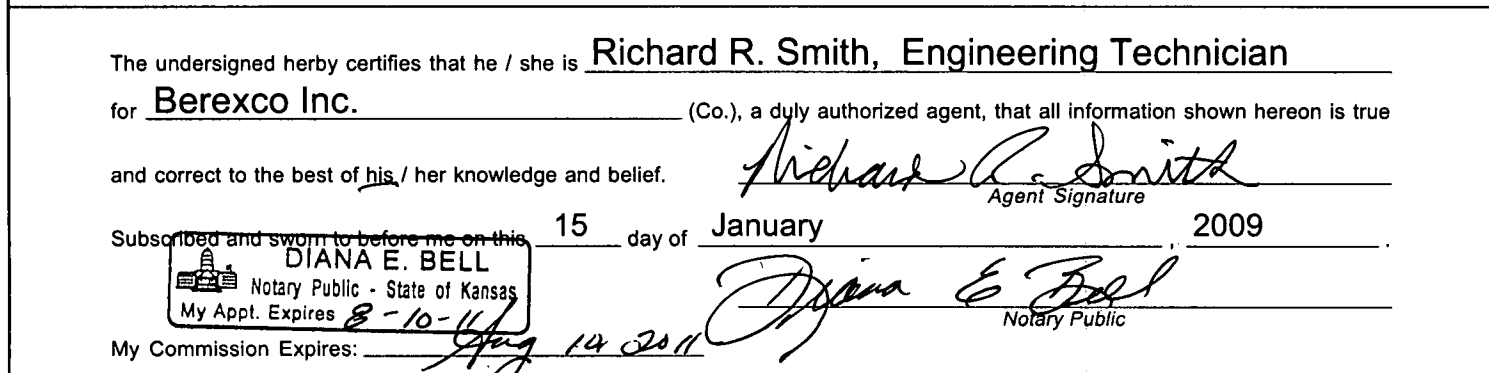 The undersigned herby certifies that he / she is Richard R. Smith, Engineering Technician
for Berexco Inc. (Co.), a duly authorized agent, that all information shown hereon is true
and correct to the best of his / her knowledge and belief. Richard R. Smith
Agent Signature
Subscribed and sworn to before me on this 15 day of January, 2009.
DIANA E. BELL
Notary Public - State of Kansas
My Appt. Expires 8-10-11
Diana E Bell
Notary Public
My Commission Expires: Aug 10 2011